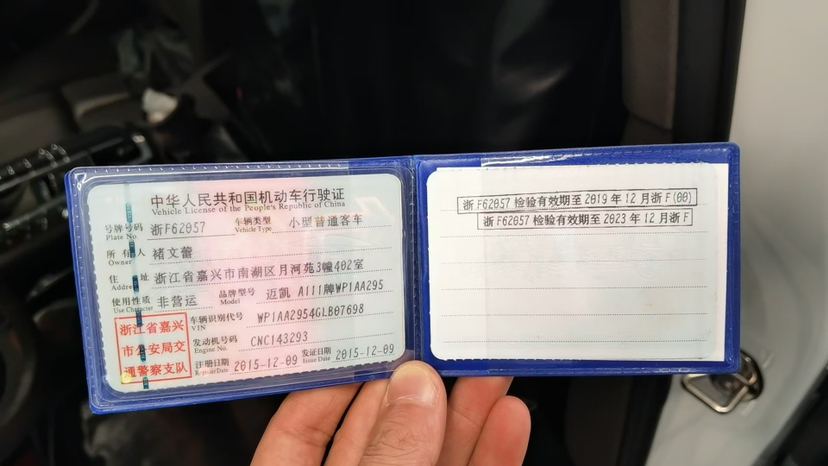 中华人民共和国机动车行驶证
Vehicle License of the People's Republic of China
号牌号码 浙F62057 车辆类型 小型普通客车
Plate No. Vehicle Type
所有人 褚文蕾
Owner
住址 浙江省嘉兴市南湖区月河苑3幢402室
Address
使用性质 非营运 品牌型号 迈凯 A111牌WP1AA295
Use Character Model
浙江省嘉兴
市公安局交
通警察支队
车辆识别代号 WP1AA2954GLB07698
VIN
发动机号码 CNC143293
Engine No.
注册日期 2015-12-09 发证日期 2015-12-09
Register Date Issue Date
浙 F62057 检验有效期至 2019 年 12 月浙 F(00)
浙 F62057 检验有效期至 2023 年 12 月浙 F